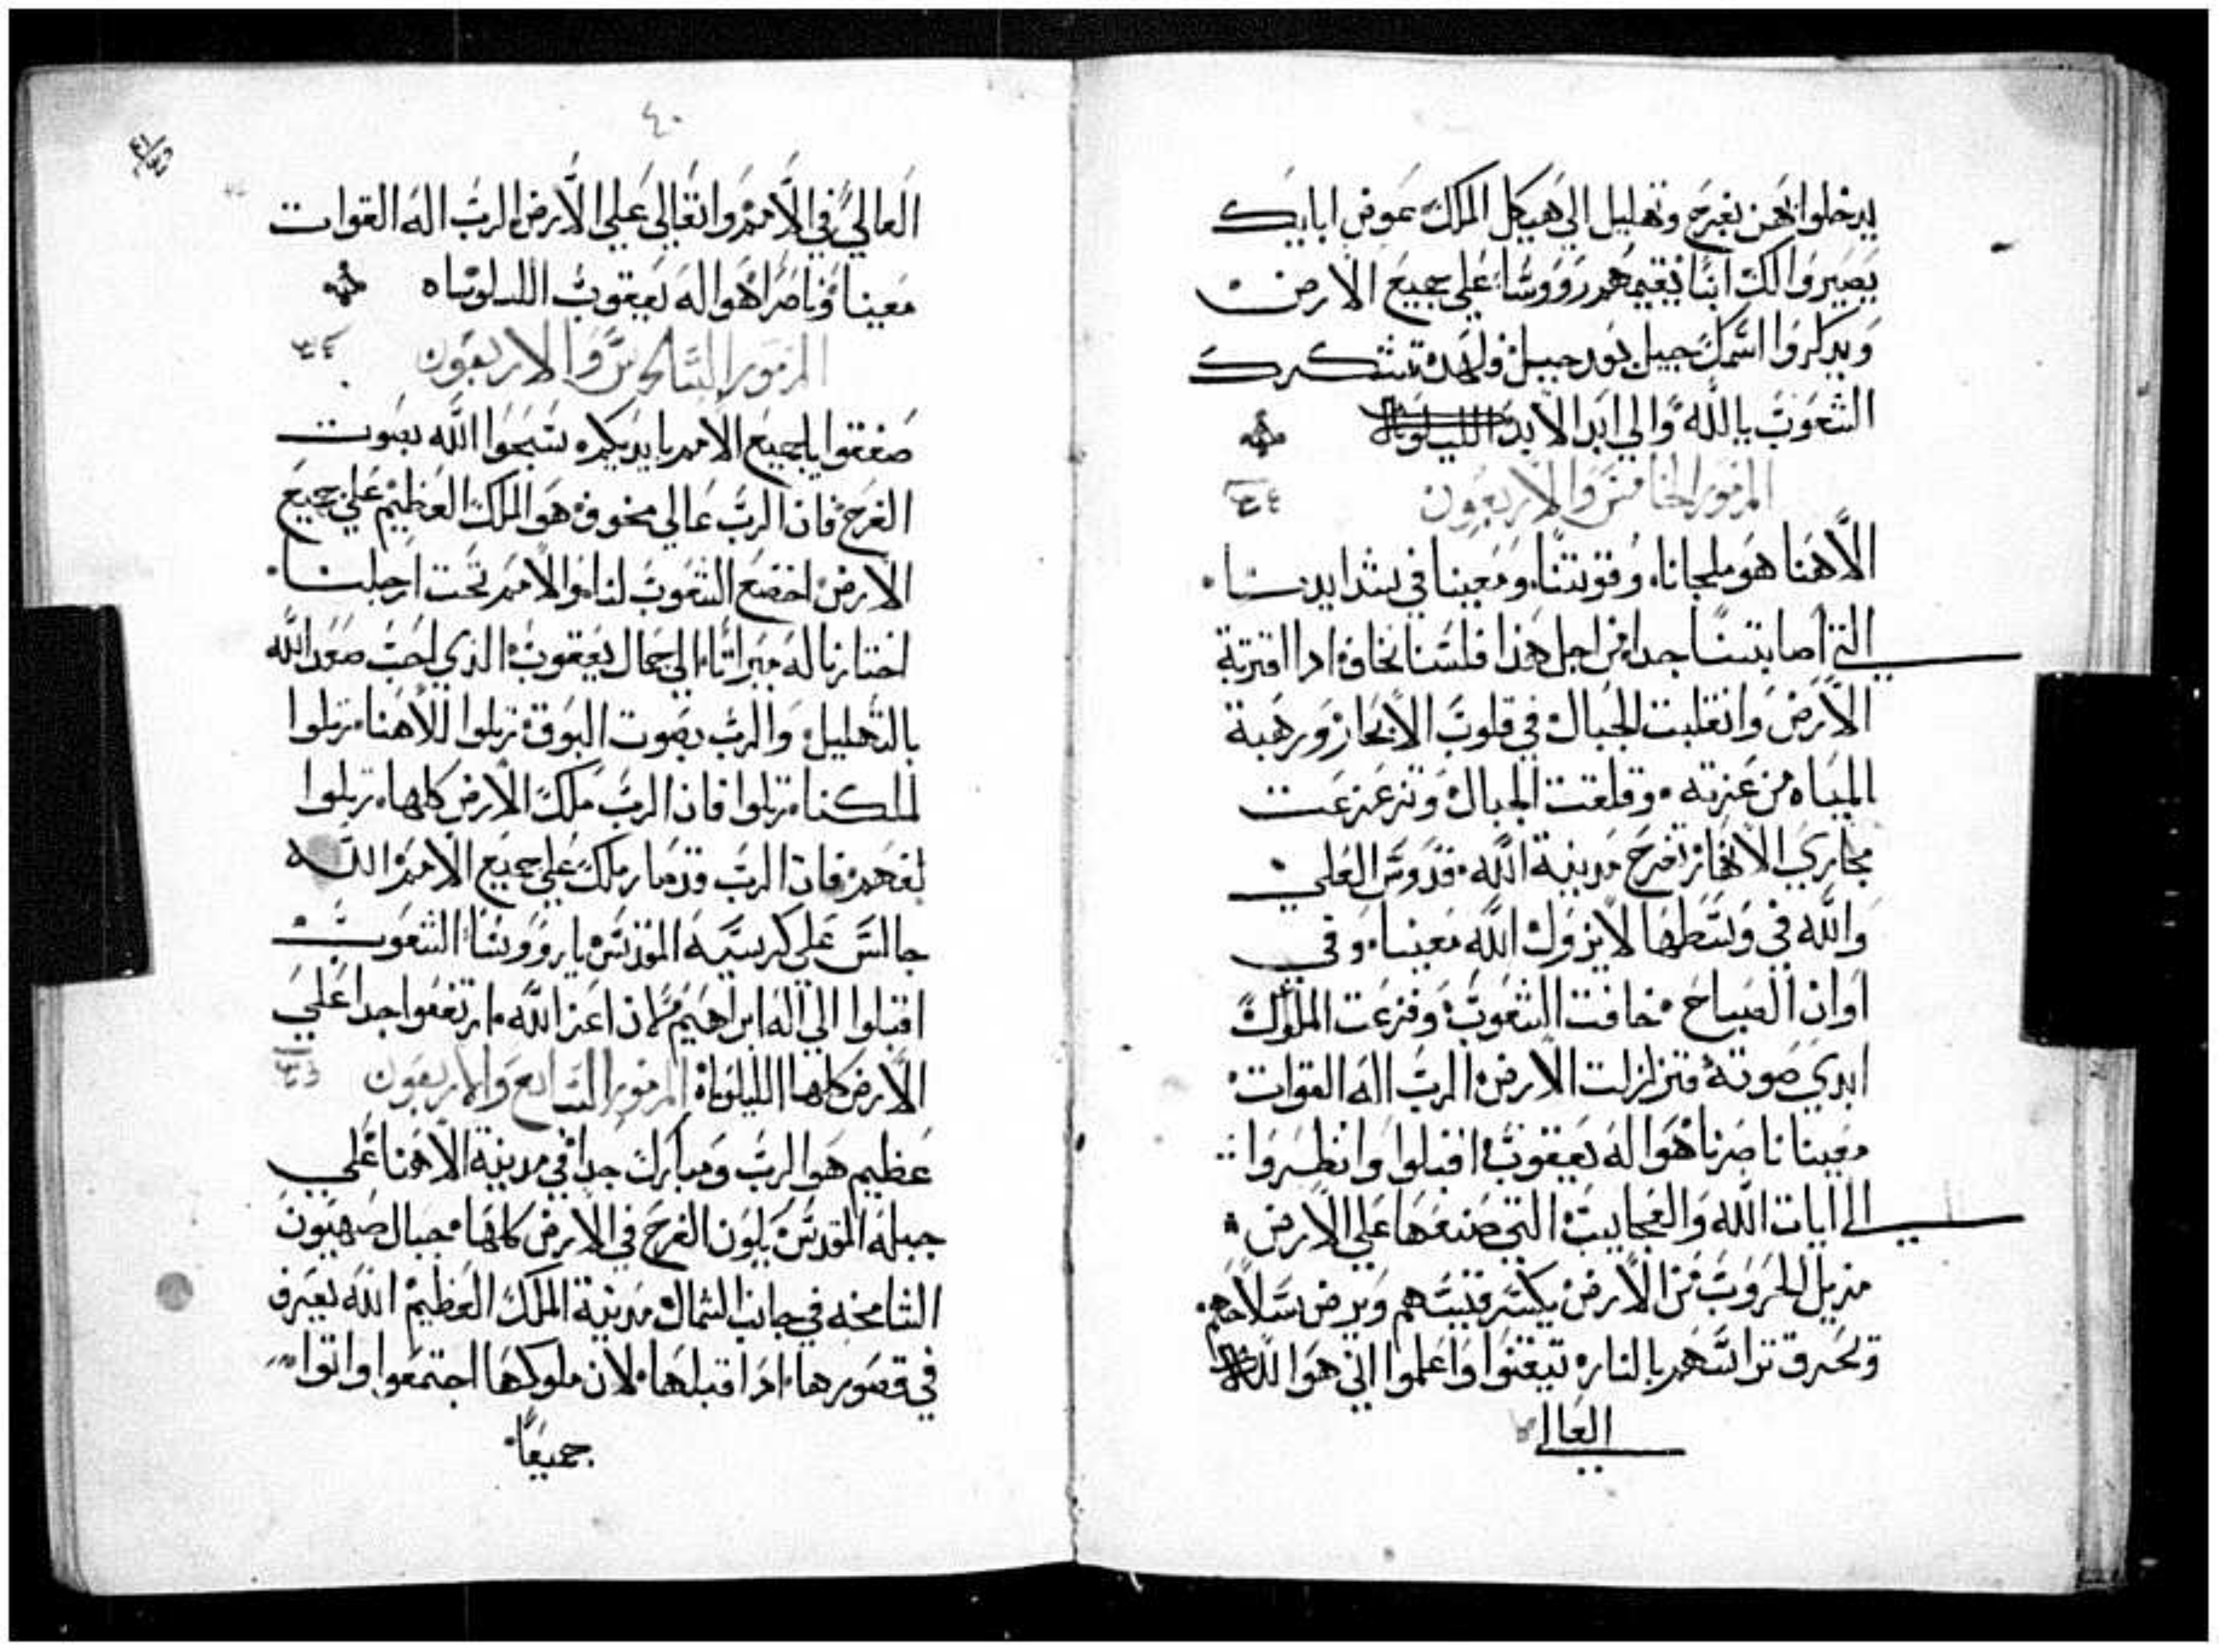 يدخلوا بهن بفرح وتهليل الي هيكل الملك عوض ابايك
يصيروا لك ابنا تقيمهم رووسا علي جميع الارض
ويدكروا اسمك جيل بعد جيل ولهده تشكرك
الشعوب يا الله والي ابد الابد الليلويا
المزمور الخامس والاربعون
الاهنا هو ملجانا وقوتنا ومعينا في شدايدنا
التي اصابتنا جدا من اجل هذا فلسنا نخاف ادا اقتربة
الارض وانقلبت الجبال في قلوب الابحار ورهبة
المياه من عزته وقلقت الجبال وتزعزعت
مجاري الانهار تفرح مدينة الله قدوس العلي
والله في وسطها لا يزول الله معينا وفي
اوان الصباح خافت الشعوب وفزعت الملوك
ابدي صوته فتزلزلت الارض الرب اله القوات
معينا ناصرنا هو اله يعقوب اقبلوا وانظروا
الي ايات الله والعجايب التي صنعها علي الارض
مزيل الحروب من الارض يكسر قسيهم ويرض سلاحهم
وتحرق تراسهم بالنار تيقنوا واعلموا اني هو الله
العالي
٤٠
العالي في الامم واتعالي علي الارض الرب اله القوات
معينا وناصرا هو اله يعقوب الليلوياه
المزمور السادس والاربعون
صفقوا يا جميع الامم بايديكم سبحوا الله بصوت
الفرح فان الرب عالي مخوف هو الملك العظيم علي جميع
الارض اخضع الشعوب لنا والامم تحت ارجلنا
اختارنا له ميراثا الي جمال يعقوب الذي احب صعد الله
بالتهليل والرب بصوت البوق رتلوا لالاهنا رتلوا
لملكنا رتلوا فان الرب ملك الارض كلها رتلوا
لفهم فان الرب قد صار ملك علي جميع الامم الله
جالس علي كرسيه المقدس يا رووسا الشعوب
اقبلوا الي اله ابراهيم لان اعز الله ارتفعوا جدا علي
الارض كلها الليلوياه المزمور السابع والاربعون
عظيم هو الرب ومبارك جدا في مدينة الاهنا علي
جبله المقدس يكون الفرح في الارض كلها جبال صهيون
الشامخه في جانب الشمال مدينة الملك العظيم الله يعرف
في قصورها ادا قبلها لان ملوكها اجتمعوا واتوا
جميعا